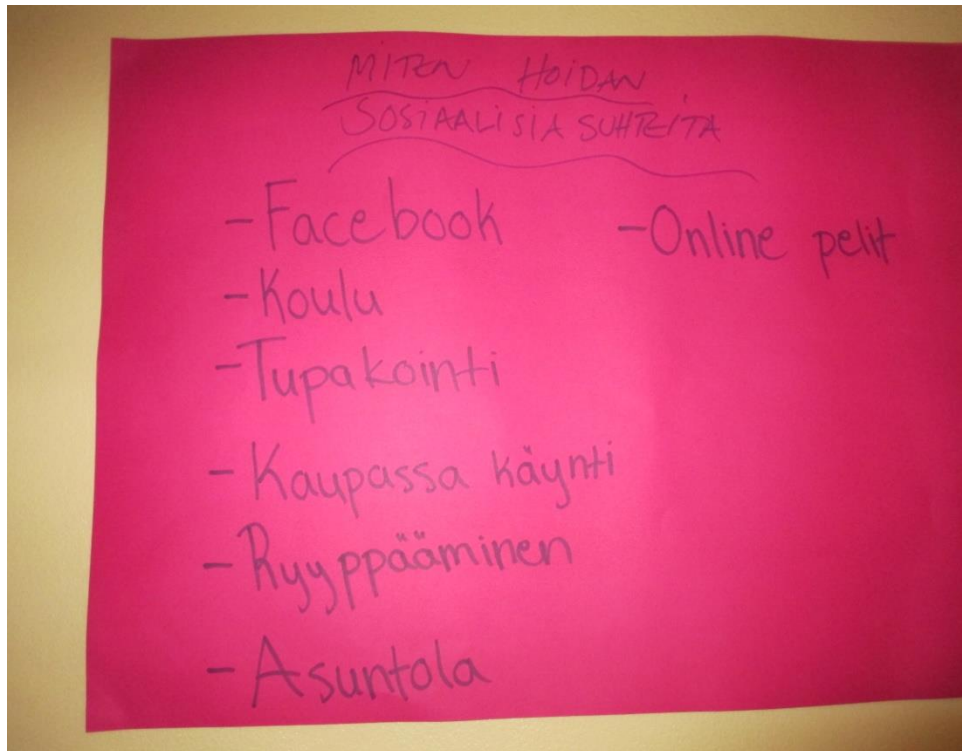 MITEN HOIDAN
SOSIAALISIA SUHTEITA
-Facebook
-Koulu
-Tupakointi
-Kaupassa käynti
-Ryyppääminen
-Asuntola
-Online pelit